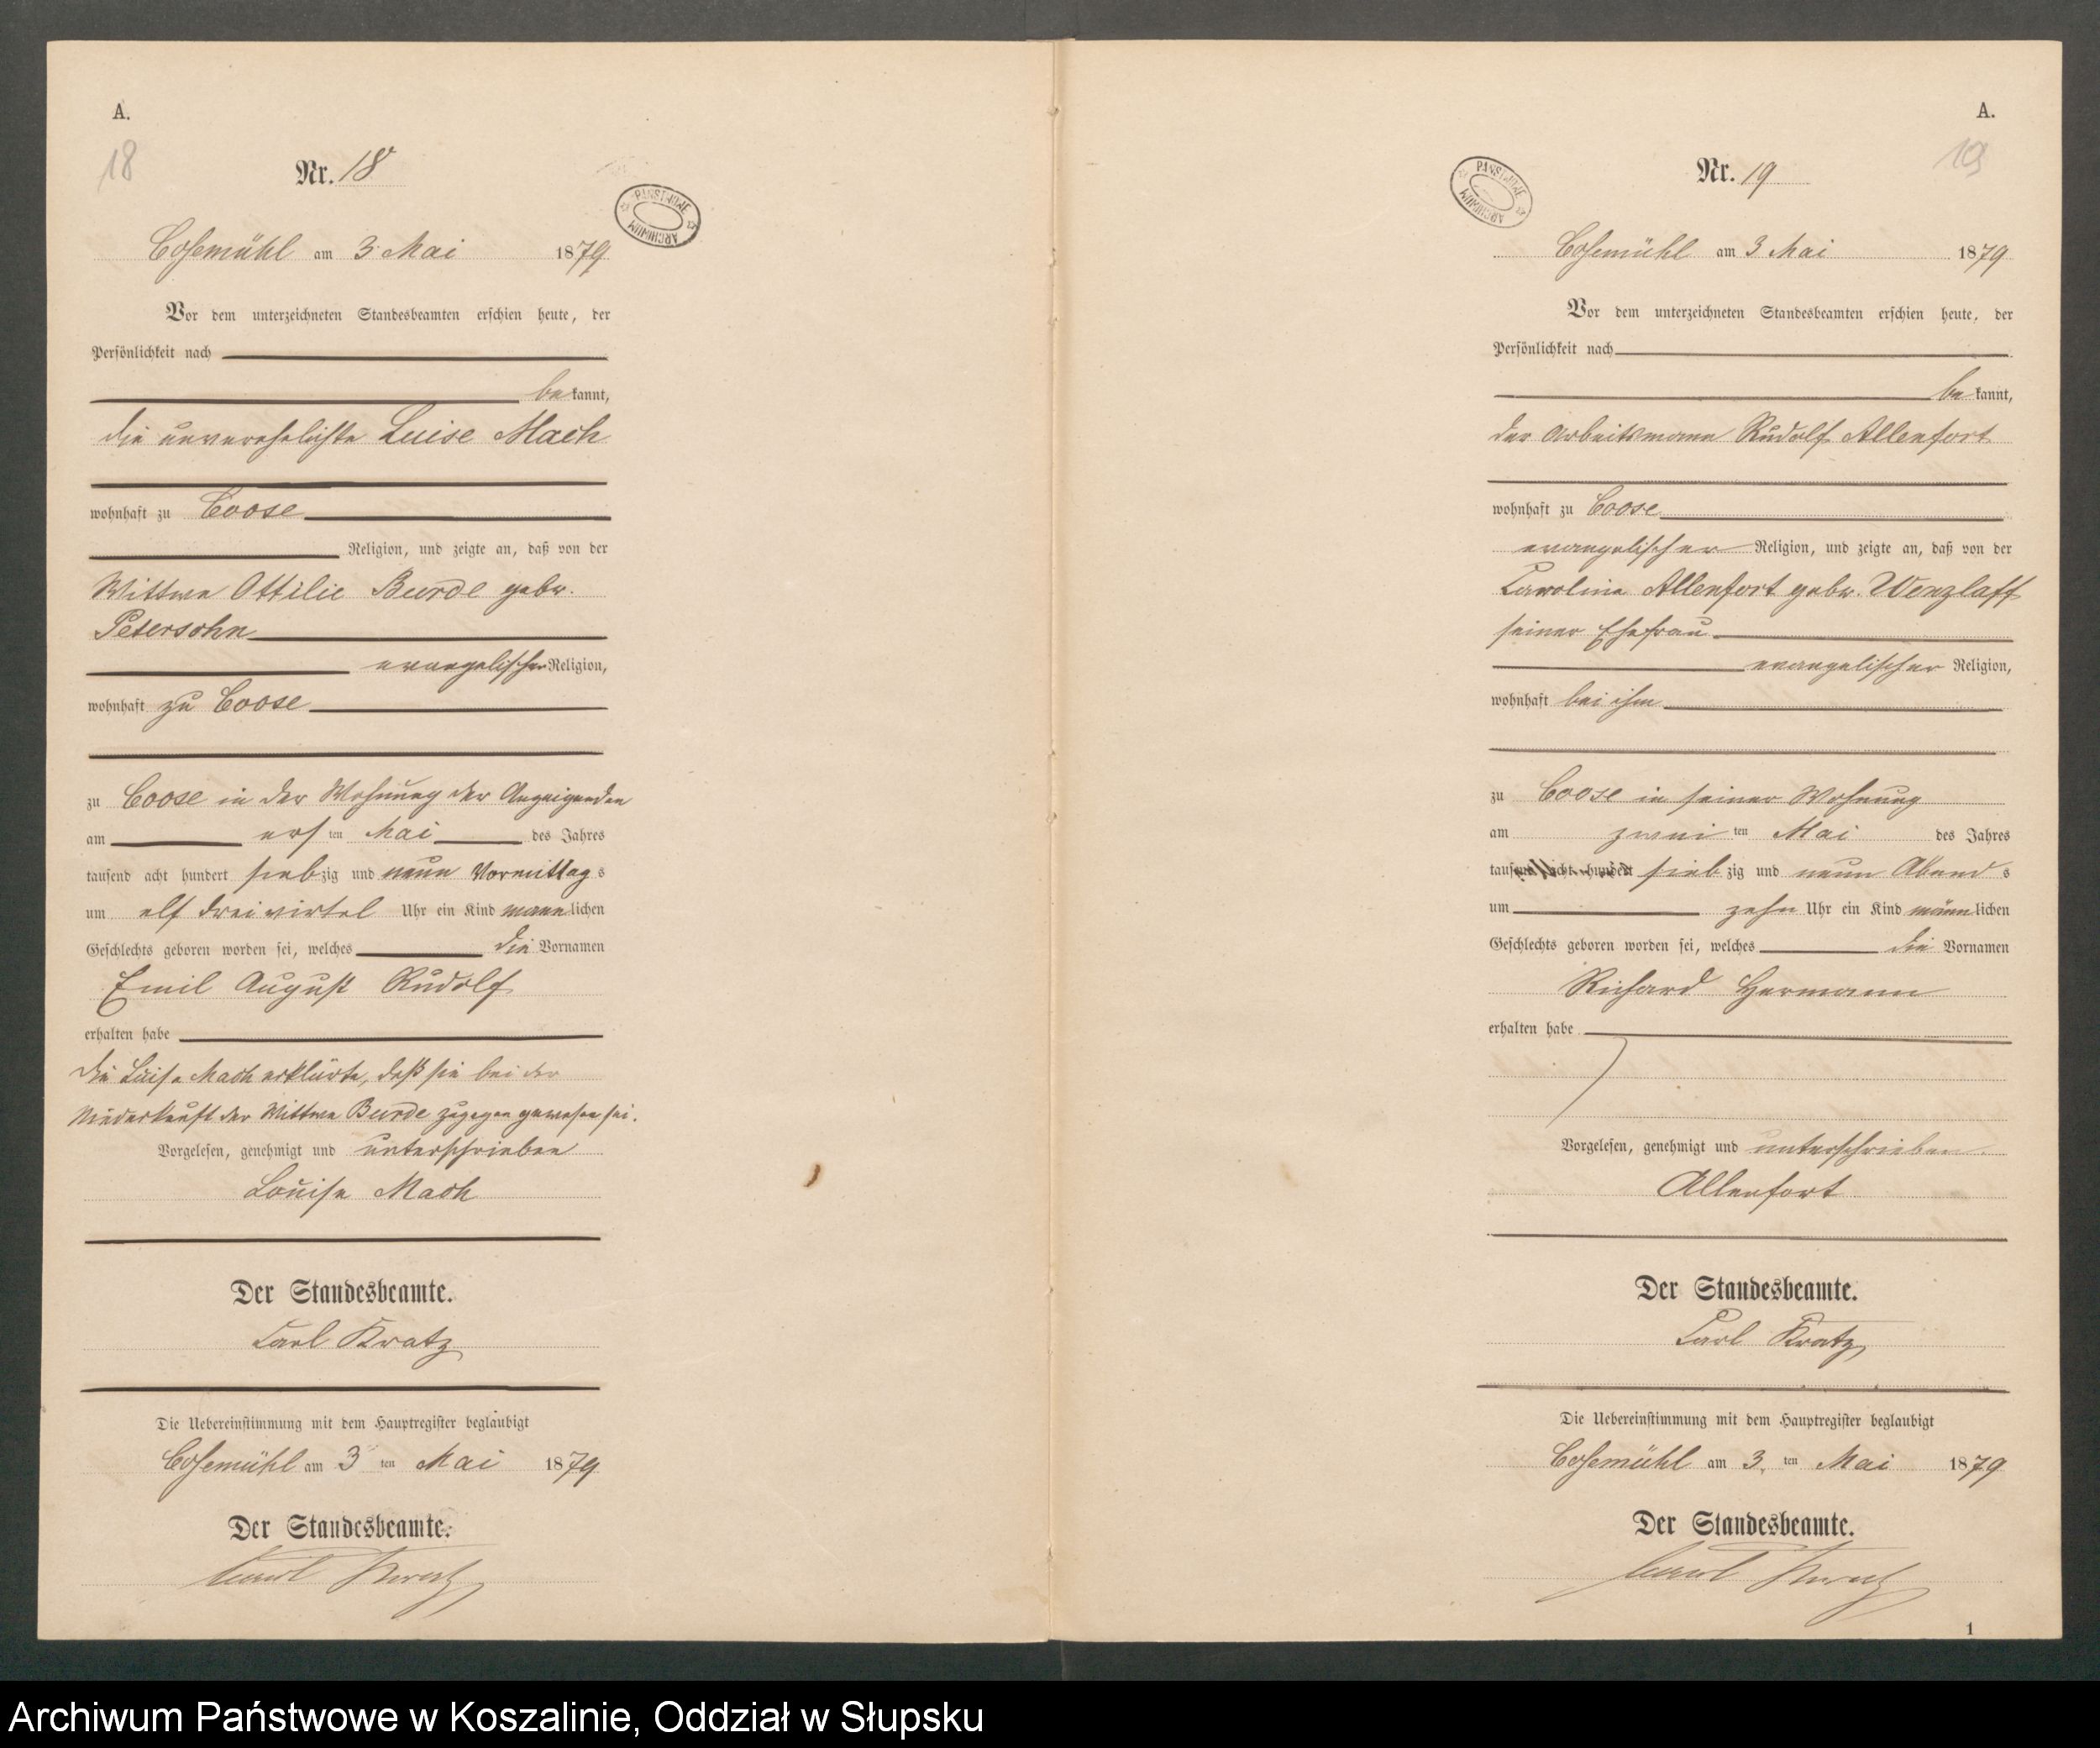 A.
18
Nr. 18
PAŃSTWOWE ARCHIWUM
Cosemühl am 3 Mai 1879
Vor dem unterzeichneten Standesbeamten erschien heute, der
Persönlichkeit nach
bekannt,
die unverehelichte Luise Mach
wohnhaft zu Coose
Religion, und zeigte an, daß von der
Wittwe Ottilie Burde gebor.
Petersohn
evangelischer Religion,
wohnhaft zu Coose
zu Coose in der Wohnung der Anzeigenden
am ersten Mai des Jahres
tausend acht hundert siebzig und neun Vormittags
um elf dreivirtel Uhr ein Kind mannlichen
Geschlechts geboren worden sei, welches die Vornamen
Emil August Rudolf
erhalten habe
Die Luise Mach erklärte, daß sie bei der
Niederkunft der Wittwe Burde zugegen gewesen sei.
Vorgelesen, genehmigt und unterschrieben
Louise Mach
Der Standesbeamte.
Carl Kratz
Die Uebereinstimmung mit dem Hauptregister beglaubigt
Cosemühl am 3 ten Mai 1879
Der Standesbeamte.
Carl Kratz
A.
19
Nr. 19
PAŃSTWOWE ARCHIWUM
Cosemühl am 3 Mai 1879
Vor dem unterzeichneten Standesbeamten erschien heute, der
Persönlichkeit nach
bekannt,
der Arbeitsmann Rudolf Allenfort
wohnhaft zu Coose
evangelischer Religion, und zeigte an, daß von der
Caroline Allenfort gebor. Wenzlaff
seiner Ehefrau
evangelischer Religion,
wohnhaft bei ihm
zu Coose in seiner Wohnung
am zweiten Mai des Jahres
tausend acht hundert siebzig und neun Abends
um zehn Uhr ein Kind männlichen
Geschlechts geboren worden sei, welches die Vornamen
Richard Hermann
erhalten habe
Vorgelesen, genehmigt und unterschrieben.
Allenfort
Der Standesbeamte.
Carl Kratz
Die Uebereinstimmung mit dem Hauptregister beglaubigt
Cosemühl am 3. ten Mai 1879
Der Standesbeamte.
Carl Kratz
1
Archiwum Państwowe w Koszalinie, Oddział w Słupsku